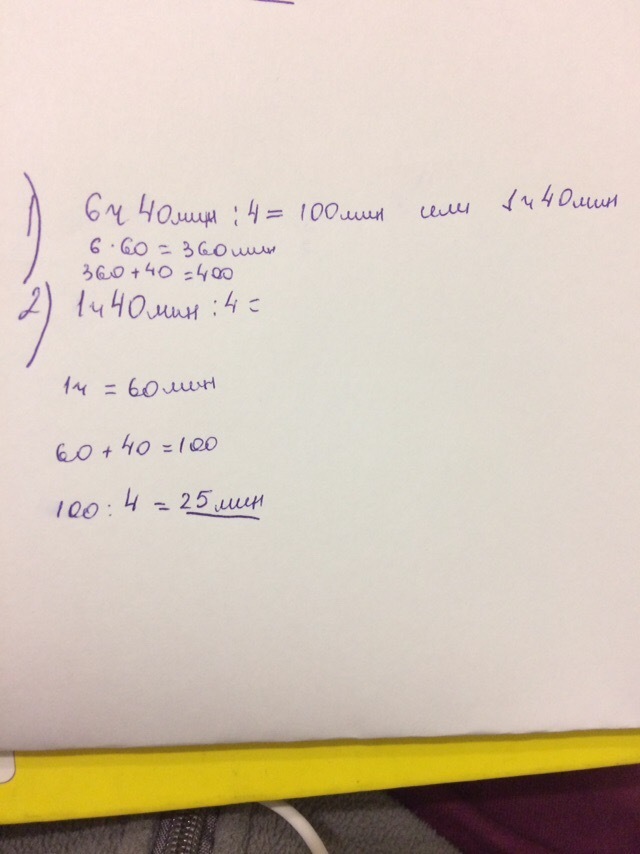 1) 6ч 40мин : 4 = 100мин или 1ч 40мин
6 · 60 = 360мин
360 + 40 = 400
2) 1ч 40мин : 4 =
1ч = 60мин
60 + 40 = 100
100 : 4 = 25мин